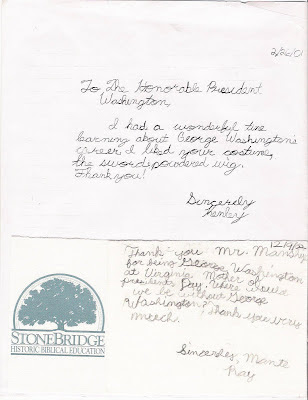 2/26/01
To The Honorable President
Washington,
I had a wonderful time
learning about George Washington's
career. I liked your costume,
the sword, powdered wig.
Thank you!
Sincerely
Kenley
12/4/02
Thank you Mr. Manship
for being George Washington
at Virginia Mother of
presidents Day. Where would
we be without George
Washington? Thank you very
meech.
Sincerely, Mante
Ray
STONEBRIDGE
HISTORIC BIBLICAL EDUCATION